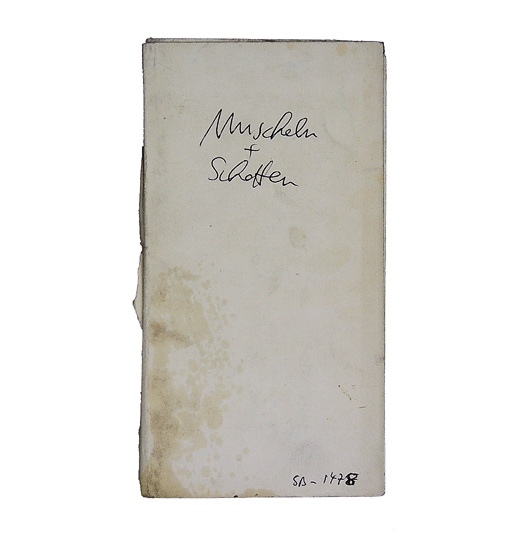 Muscheln
+
Schotten
SB-1478